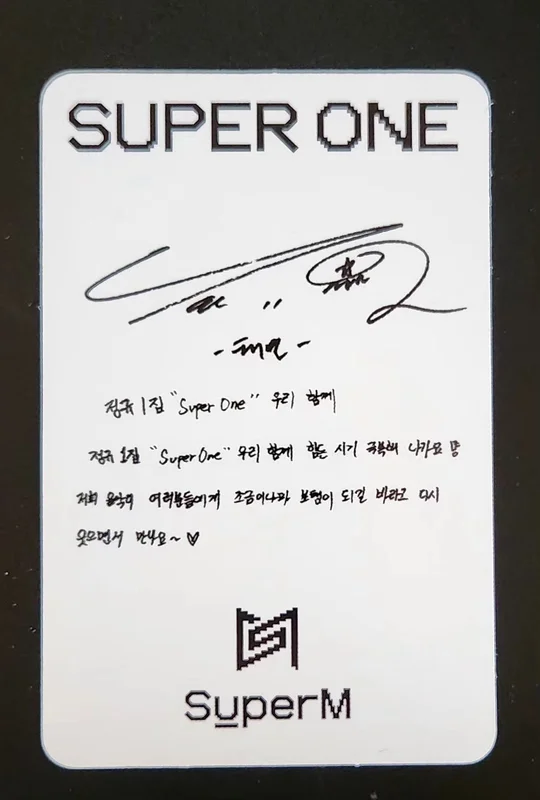 SUPER ONE
-태민-
정규 1집 "Super One" 우리 함께
정규 1집 "Super One" 우리 함께 힘든 시기 극복해 나가요
저희 음악이 여러분들에게 조금이나마 보탬이 되길 바라고 다시
웃으면서 만나요~ ♡
SuperM